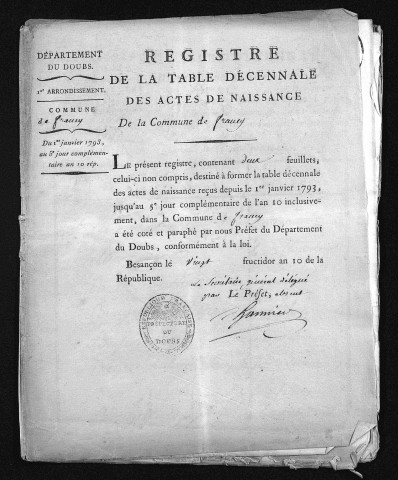 DÉPARTEMENT
DU DOUBS.
1.er ARRONDISSEMENT.
COMMUNE
de franey
Du 1.er janvier 1793,
au 5.e jour complémen-
taire an 10 rép.
REGISTRE
DE LA TABLE DÉCENNALE
DES ACTES DE NAISSANCE
De la Commune de franey
LE présent registre, contenant deux feuillets,
celui-ci non compris, destiné à former la table décennale
des actes de naissance reçus depuis le 1.er janvier 1793,
jusqu'au 5.e jour complémentaire de l'an 10 inclusive-
ment, dans la Commune de franey
a été coté et paraphé par nous Préfet du Département
du Doubs, conformément à la loi.
Besançon le vingt fructidor an 10 de la
République.
Le Secrétaire général délégué
par LE Préfet, absent
DOUBS